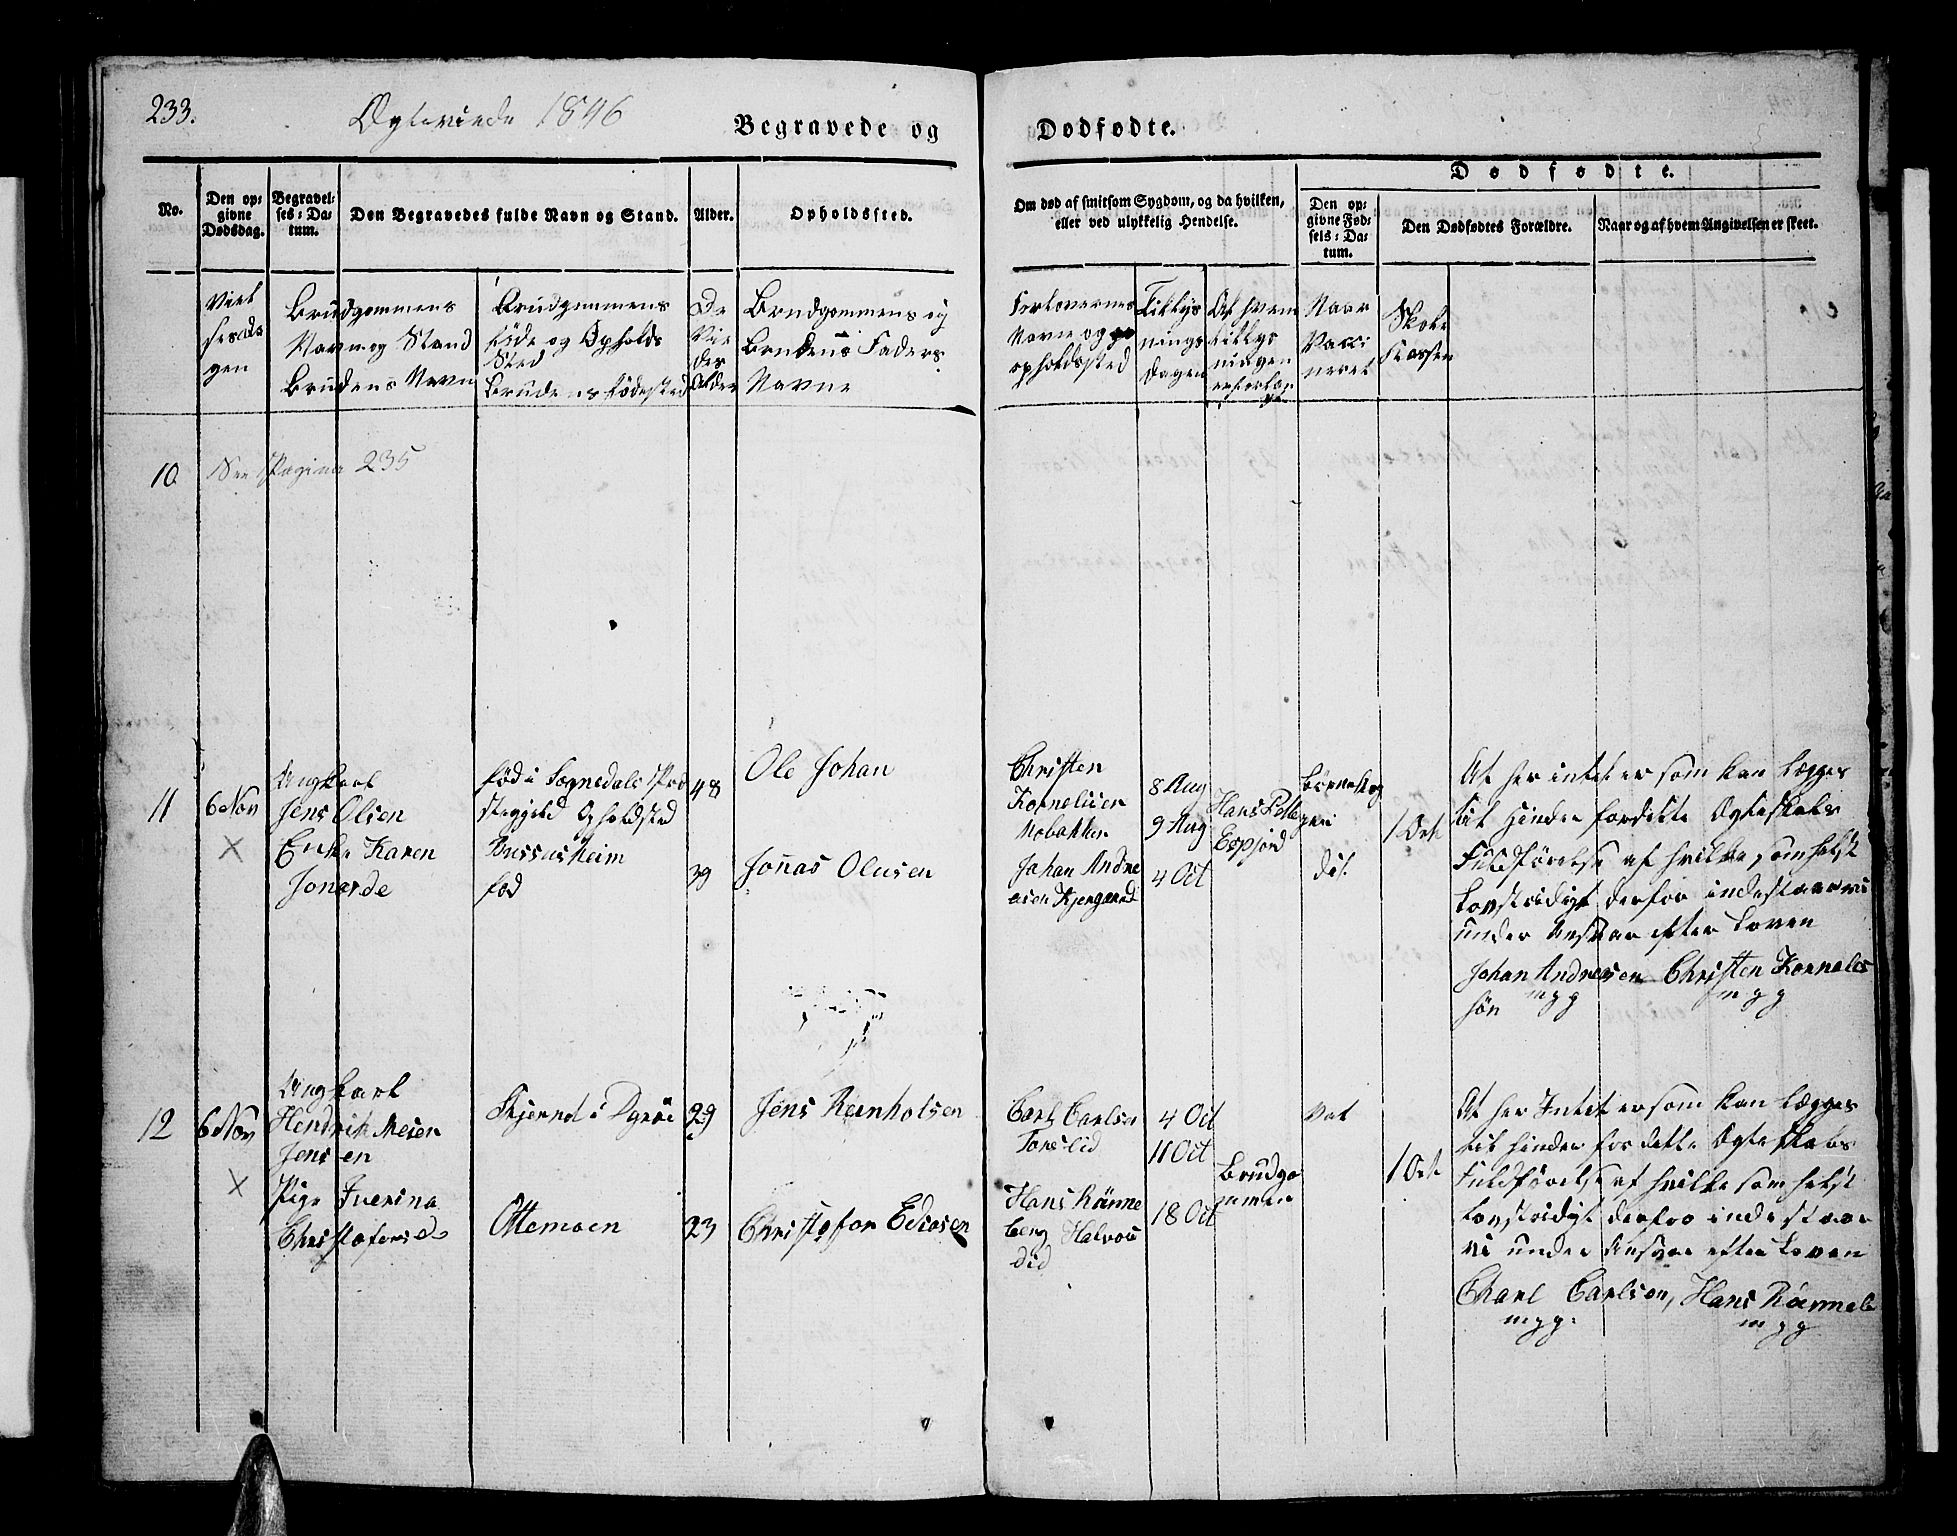 233.
Ægteviede 1846
Begravede og
Dødfødte.
No.
Den op-
givne
Dødsdag.
Begravel-
ses-Da-
tum.
Den Begravedes fulde Navn og Stand.
Alder.
Opholdssted.
Om død af smitsom Sygdom, og da hvilken,
eller ved ulykkelig Hendelse.
Dødfødte.
Den op-
givne Fød-
sels-Da-
tum.
Den Dødfødtes Forældre.
Naar og af hvem Angivelsen er skeet.
Viel
sesda
gen
Brudgommens
Navn og Stand
Brudens Navn
Brudgommens
føde og Opholds
Sted
Brudens fødested
De
Vie
des
Alder
Brudgommens og
Brudens Faders
Navne
Forlovernes
Navne og
opholdssted
Tillys
nings
Dagen
Af hvem
tillys
ningen
Naar
Vacci
neret
10
See Pagina 235
11
6 Nov
Ungkarl
Jens Olsen
Enke Karen
fød i Sognedals Præ
stegjeld Opholdsted
fød
48
39
Ole Johan
Jonas Olusen
Christen
Johan Andre
8 Aug
9 Aug
4 Oct
Hans Peder
Espjord
do.
1 Ort
At her intet er som kan lægges
til Hinder for dette Ægteskabs
Fuldførelse af hvilke somhelst
Lovstridigt derfor indestaar vi
under Ansvar efter Loven
Johan Andresen Christen Kornelis
søn mpg mpg
12
6 Nov
Ungkarl
Hendrik Meier
Jensen
Pige Iverina
Skjernd i Dyrøe
Ottemoen
29
23
Jens Reinholsen
Christofor Ediasen
Carl Carlsen
Hans Rønne
berg
4 Oct
11 Oct
18 Oct
Brudgo
mmen
1 Ort
At her Intet er som kan lægges
til hinder for dette Ægteskabs
Fuldførelse af hvilke somhelst
Lovstridigt derfor indestaar
vi under Ansvar efter Loven
Charl Carlson, Hans Rönneb
mpg. mpg